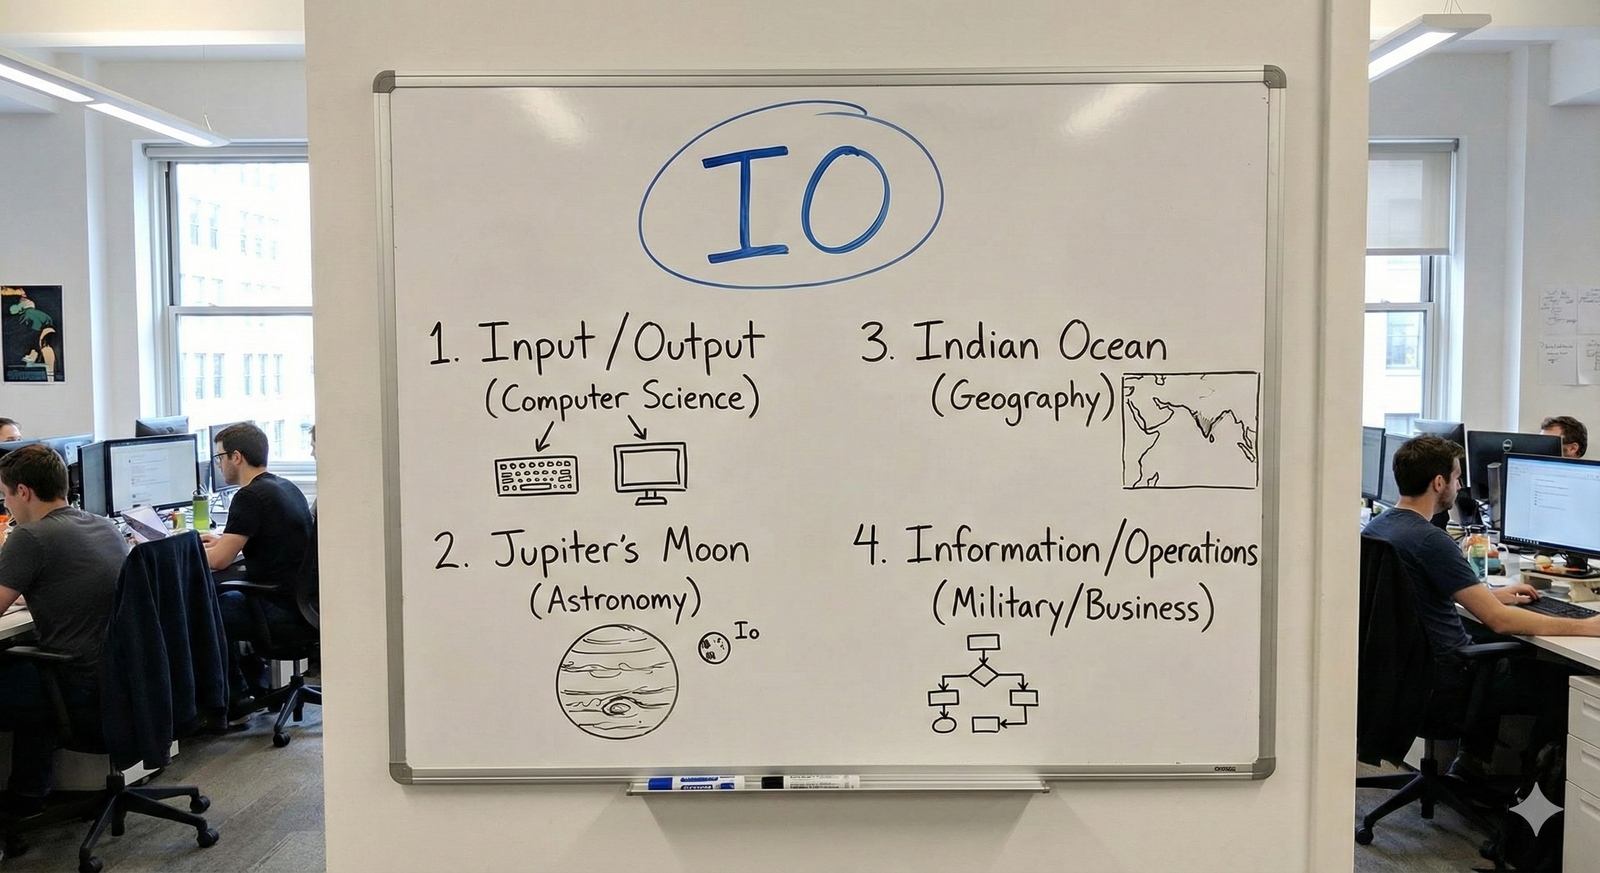 IO
1. Input/Output
(Computer Science)
2. Jupiter's Moon
(Astronomy)
Io
3. Indian Ocean
(Geography)
4. Information/Operations
(Military/Business)
DELL